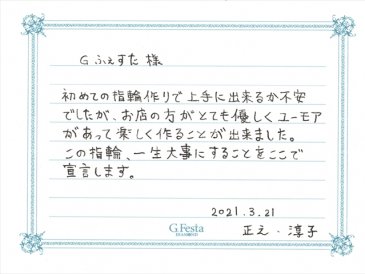 Gふぇすた 様
初めての指輪作りで上手に出来るか不安
でしたが、お店の方がとても優しくユーモア
があって楽しく作ることが出来ました。
この指輪、一生大事にすることをここで
宣言します。
2021.3.21
正え・淳子
G.Festa
DIAMOND